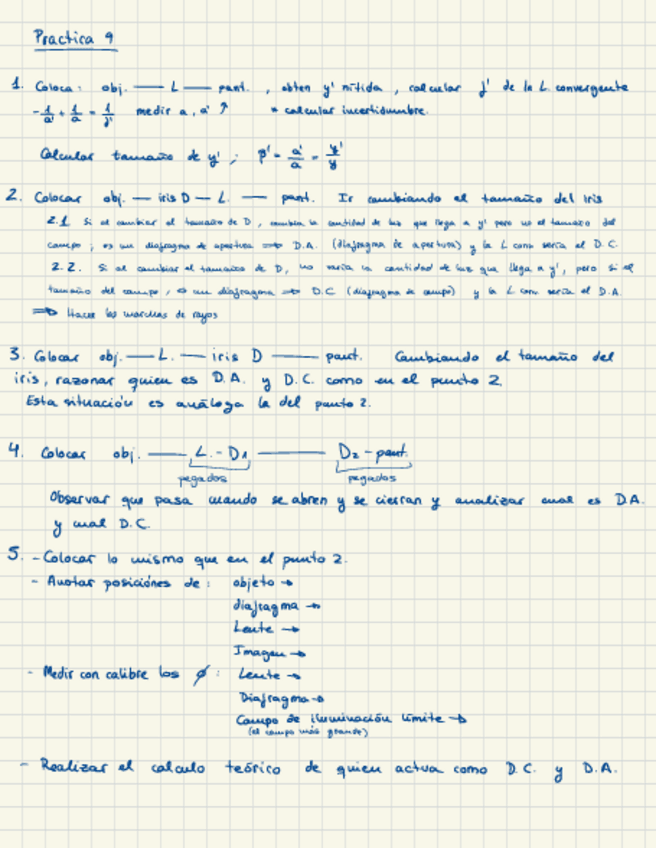 Practica 9
1. Coloca: obj. — L — pant. , obten y' nítida , calcular f' de la L. convergente
-1/a + 1/a' = 1/f' medir a, a' ↗ * calcular incertidumbre.
Calcular tamaño de y' ; β' = a'/a = y'/y
2. Colocar obj. — iris D — L. — pant. Ir cambiando el tamaño del iris
2.1 Si al cambiar el tamaño de D, cambia la cantidad de luz que llega a y' pero no el tamaño del
campo, es un diafragma de apertura ⇒ D.A. (diafragma de apertura) y la L conv sería el D.C.
2.2. Si al cambiar el tamaño de D, no varía la cantidad de luz que llega a y', pero si el
tamaño del campo, es un diafragma ⇒ D.C (diafragma de campo) y la L conv sería el D.A.
⇒ Hacer las marchas de rayos
3. Colocar obj. — L. — iris D — pant. Cambiando el tamaño del
iris, razonar quien es D.A. y D.C. como en el punto 2
Esta situación es análoga la del punto 2.
4. Colocar obj. — L. - D1 — D2 - pant.
pegados pegados
Observar que pasa cuando se abren y se cierran y analizar cual es D.A.
y cual D.C.
5. - Colocar lo mismo que en el punto 2.
- Anotar posiciónes de : objeto →
diafragma →
Lente →
Imagen →
- Medir con calibre los ∅ : Lente →
Diafragma →
Campo de iluminación límite →
(el campo más grande)
- Realizar el calculo teórico de quien actua como D.C. y D.A.